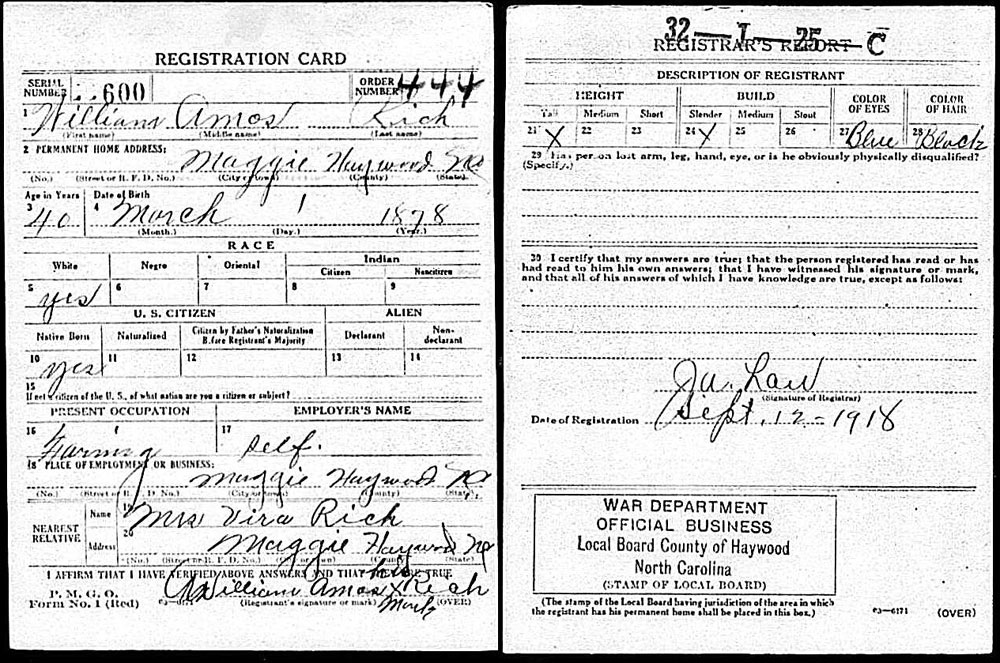 REGISTRATION CARD
SERIAL NUMBER 600 ORDER NUMBER 444
1 William Amos Rich
(First name) (Middle name) (Last name)
2 PERMANENT HOME ADDRESS:
Maggie Haywood NC
(No.) (Street or R. F. D. No.) (City or town) (County) (State)
Age in Years Date of Birth
3 40 4 March 1 1878
(Month.) (Day.) (Year.)
RACE
White Negro Oriental Indian
Citizen Noncitizen
5 yes 6 7 8 9
U. S. CITIZEN ALIEN
Native Born Naturalized Citizen by Father's Naturalization Before Registrant's Majority Declarant Non-declarant
10 yes 11 12 13 14
15
If not a citizen of the U. S., of what nation are you a citizen or subject?
PRESENT OCCUPATION EMPLOYER'S NAME
16 Farming 17 self.
18 PLACE OF EMPLOYMENT OR BUSINESS:
Maggie Haywood NC
(No.) (Street or R. F. D. No.) (City or town) (County) (State)
NEAREST RELATIVE Name 19 Mrs Vira Rich
Address 20 Maggie Haywood NC
(No.) (Street or R. F. D. No.) (City or town) (County) (State)
I AFFIRM THAT I HAVE VERIFIED ABOVE ANSWERS AND THAT THEY ARE TRUE
P. M. G. O.
Form No. 1 (Red) 03—6171 William Amos his X Mark Rich
(Registrant's signature or mark) (OVER)
32—1—25—C
REGISTRAR'S REPORT
DESCRIPTION OF REGISTRANT
HEIGHT BUILD COLOR OF EYES COLOR OF HAIR
Tall Medium Short Slender Medium Stout
21 X 22 23 24 X 25 26 27 Blue 28 Black
29 Has person lost arm, leg, hand, eye, or is he obviously physically disqualified?
(Specify.)
30 I certify that my answers are true; that the person registered has read or has
had read to him his own answers; that I have witnessed his signature or mark,
and that all of his answers of which I have knowledge are true, except as follows:
Law
(Signature of Registrar)
Date of Registration Sept. 12 - 1918
WAR DEPARTMENT
OFFICIAL BUSINESS
Local Board County of Haywood
North Carolina
(STAMP OF LOCAL BOARD)
(The stamp of the Local Board having jurisdiction of the area in which
the registrant has his permanent home shall be placed in this box.)
03—6171 (OVER)